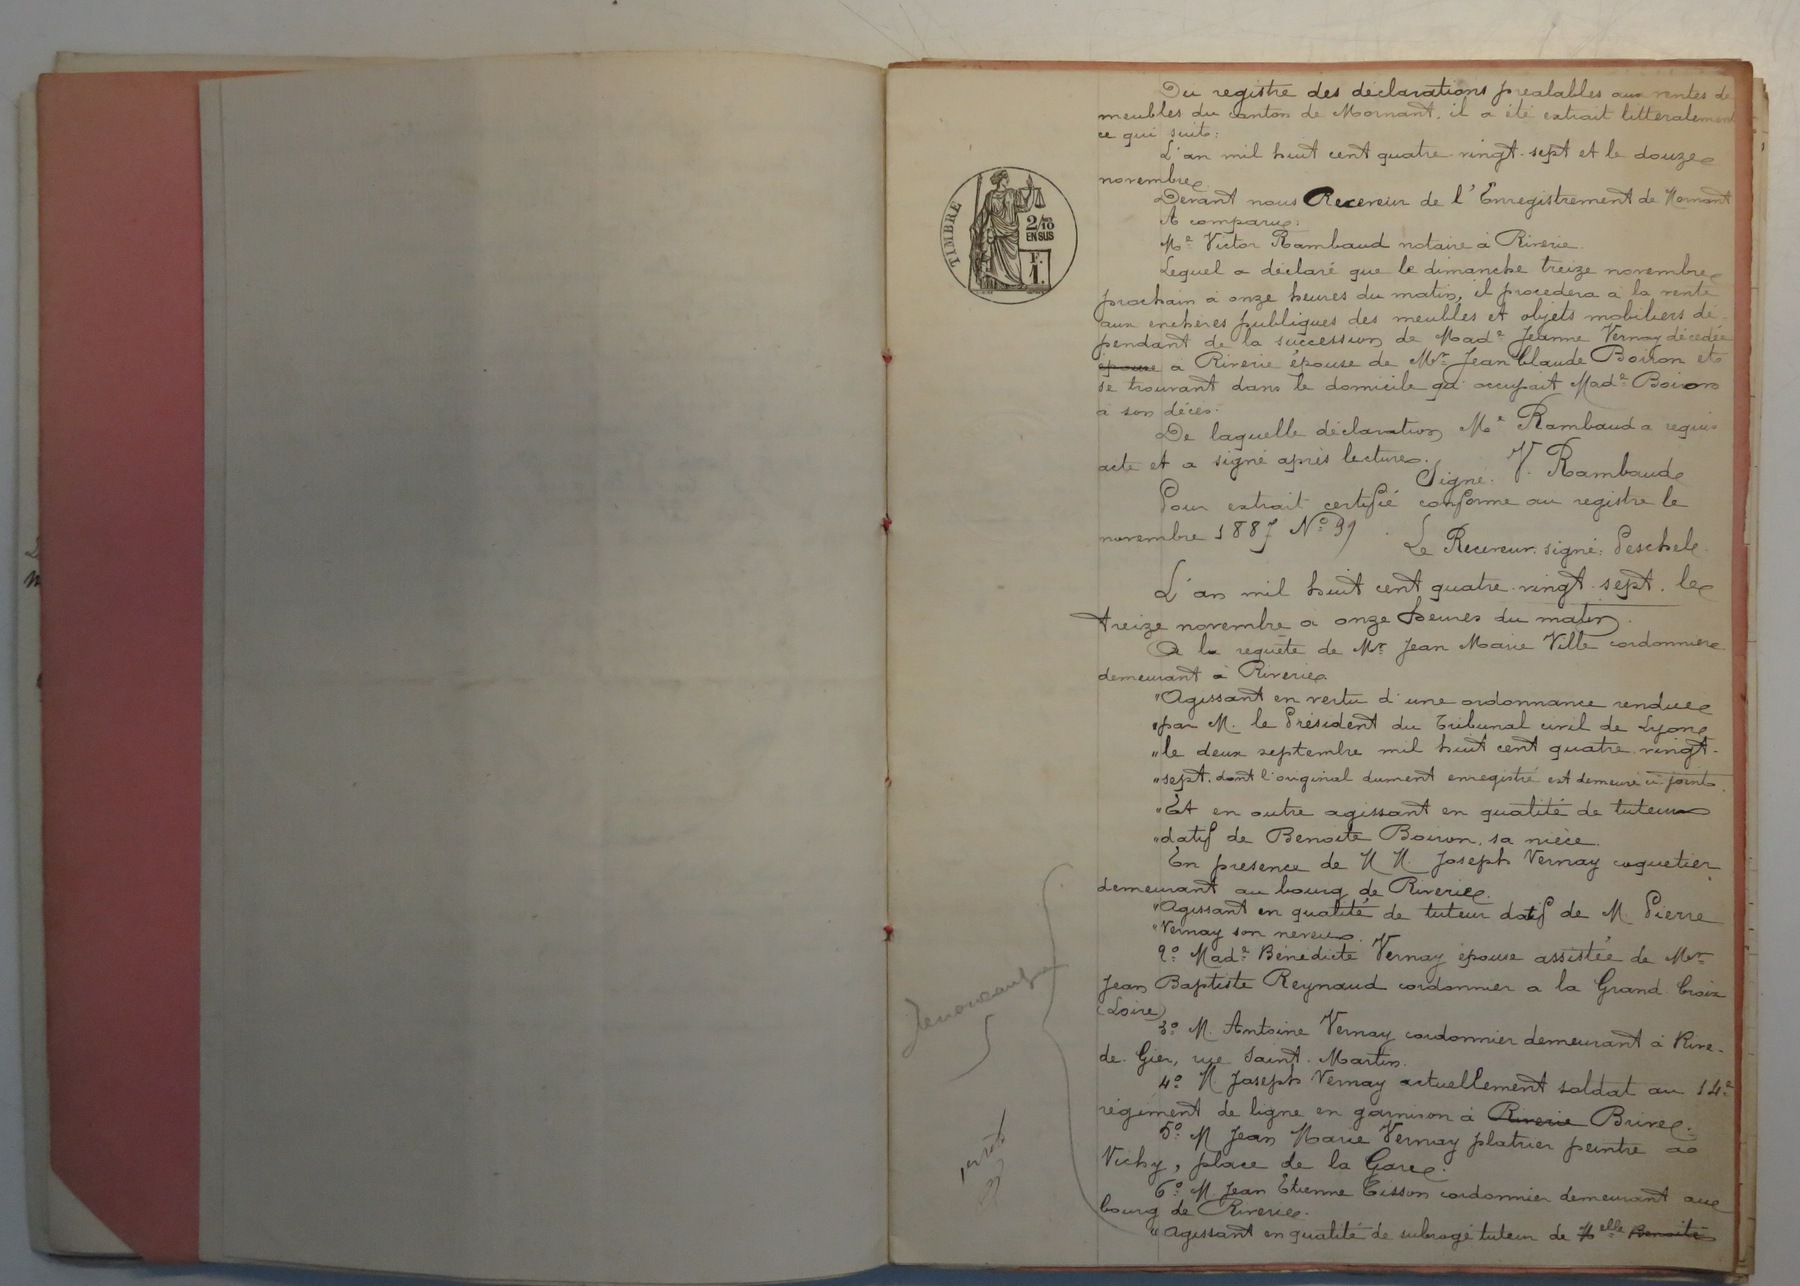 Du registre des déclarations prealables aux ventes de
meubles du canton de Mornant, il a été extrait littéralement
ce qui suit:
L'an mil huit cent quatre-vingt-sept et le douze
novembre
Devant nous Receveur de l'Enregistrement de Mornant
A comparu:
Me Victor Rambaud notaire à Riverie.
Lequel a déclaré que le dimanche treize novembre
prochain à onze heures du matin, il procèdera à la vente
aux enchères publiques des meubles et objets mobiliers dé-
pendant de la succession de Made Jeanne Vernay décédée
épouse à Riverie épouse de Mr Jean Claude Boiron et
se trouvant dans le domicile qu'occupait Made Boiron
à son décès.
De laquelle déclaration Me Rambaud a requis
acte et a signé après lecture.
Signé: V. Rambaud
Pour extrait certifié conforme au registre le
novembre 1887 No 91
Le Receveur signé: Peschel
L'an mil huit cent quatre-vingt-sept. le
treize novembre a onze heures du matin.
A la requête de Mr Jean Marie Ville cordonnier
demeurant à Riverie.
"Agissant en vertu d'une ordonnance rendue
"par M. le Président du Tribunal civil de Lyon
"le deux septembre mil huit cent quatre vingt-
"sept. dont l'original dument enregistré est demeuré ci-joint.
"Et en outre agissant en qualité de tuteur
"datif de Benoite Boiron, sa nièce.
En presence de M M. Joseph Vernay coquetier
demeurant au bourg de Riverie.
"Agissant en qualité de tuteur datif de M. Pierre
"Vernay son neveu.
2o Made Bénédicte Vernay épouse assistée de Mr
Jean Baptiste Reynaud cordonnier a la Grand Croix
(Loire)
3o M. Antoine Vernay cordonnier demeurant à Rive-
de-Gier, rue Saint-Martin.
4o M Joseph Vernay actuellement soldat au 14e
régiment de ligne en garnison à Riverie Brive.
5o M Jean Marie Vernay platrier peintre a
Vichy, place de la Gare.
6o M. Jean Etienne Tisson cordonnier demeurant au
bourg de Riverie.
"Agissant en qualité de subrogé tuteur de Melle Benoite
TIMBRE
2/10
EN SUS
F.
1.